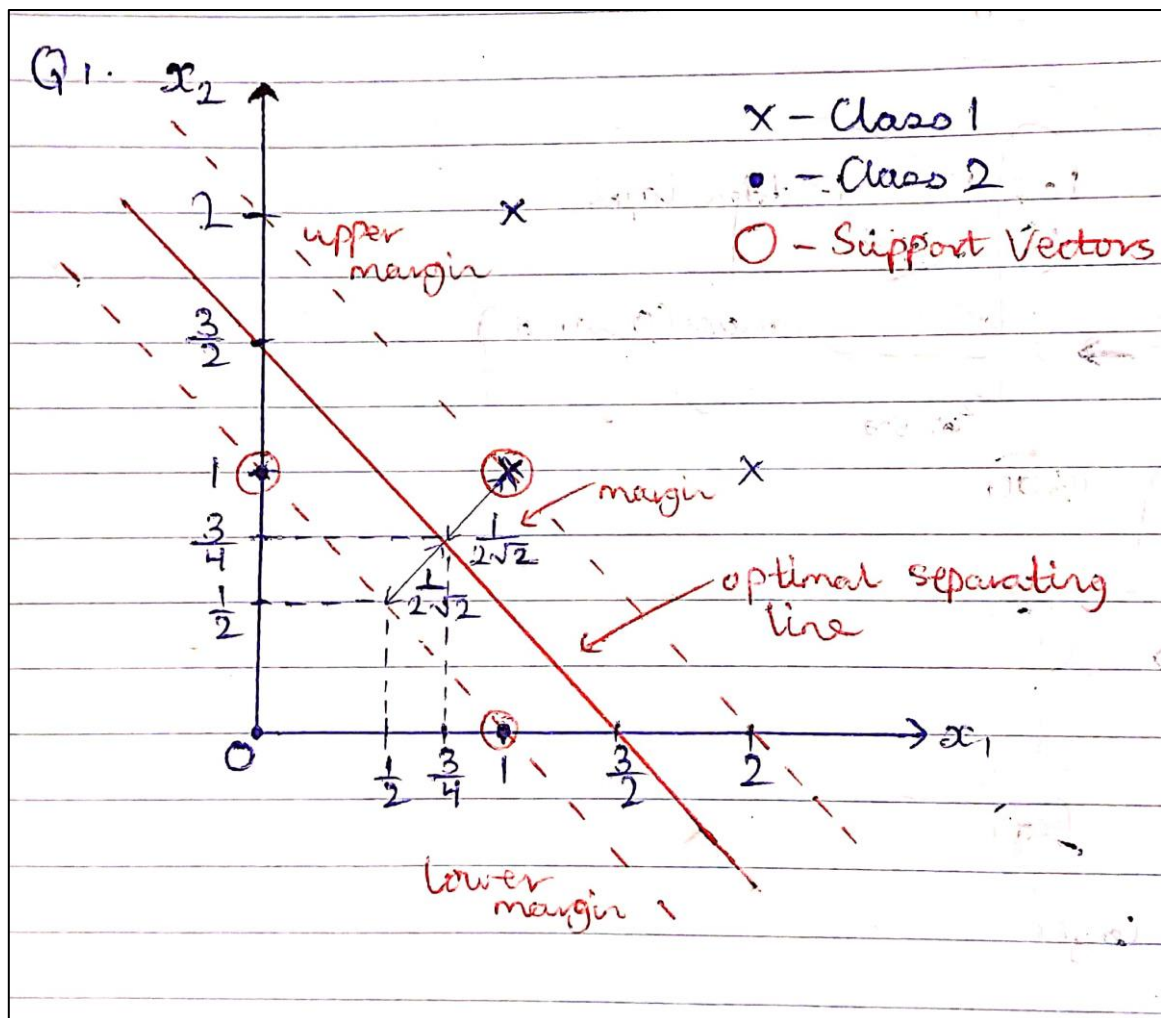 Q1. x₂
x - Class 1
• - Class 2
O - Support Vectors
2
upper
margin
3/2
1
margin
3/4
1/(2√2)
1/2
1/(2√2)
optimal separating
line
O
1/2
3/4
1
3/2
2
x₁
lower
margin